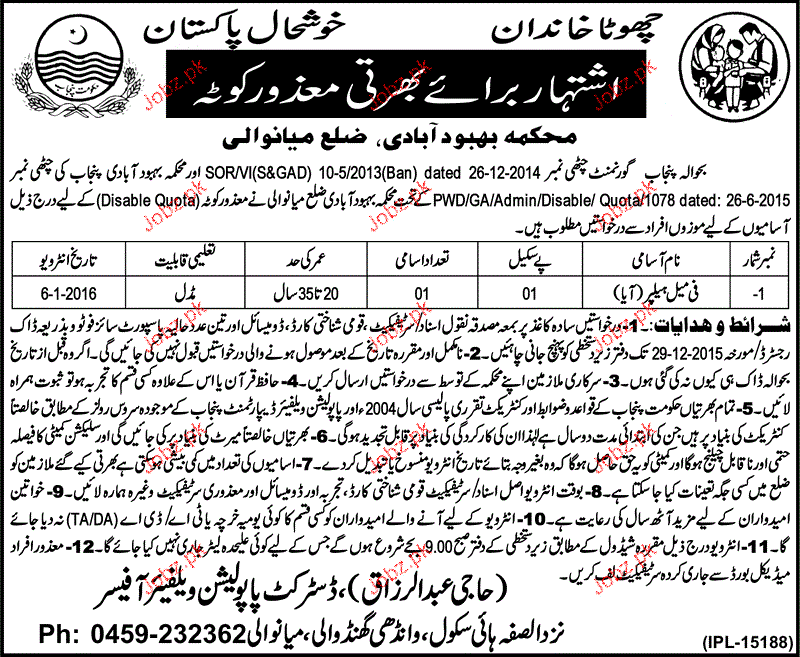 چھوٹا خاندان خوشحال پاکستان
اشتہار برائے بھرتی معذور کوٹہ
محکمہ بہبود آبادی، ضلع میانوالی
بحوالہ پنجاب گورنمنٹ چٹھی نمبر SOR/VI(S&GAD) 10-5/2013(Ban) dated 26-12-2014 اور محکمہ بہبود آبادی پنجاب کی چٹھی نمبر
PWD/GA/Admin/Disable/ Quota/1078 dated: 26-6-2015 کے تحت محکمہ بہبود آبادی ضلع میانوالی نے معذور کوٹہ (Disable Quota) کے لیے درج ذیل
آسامیوں کے لیے موزوں افراد سے درخواستیں مطلوب ہیں۔
نمبر شمار نام آسامی پے سکیل تعداد اسامی عمر کی حد تعلیمی قابلیت تاریخ انٹرویو
1- فی میل ہیلپر (آیا) 01 01 20 تا 35 سال مڈل 6-1-2016
شرائط و ہدایات: 1- درخواستیں سادہ کاغذ پر بمعہ مصدقہ نقول اسناد/سرٹیفکیٹ، قومی شناختی کارڈ، ڈومیسائل اور تین عدد حالیہ پاسپورٹ سائز فوٹو بذریعہ ڈاک
رجسٹرڈ/مورخہ 29-12-2015 تک دفتر زیر دستخطی کو پہنچ جانی چاہئیں۔ 2- نامکمل اور مقررہ تاریخ کے بعد موصول ہونے والی درخواستیں قبول نہیں کی جائیں گی۔ اگر وہ قبل از تاریخ
بحوالہ ڈاک ہی کیوں نہ کی گئی ہوں۔ 3- سرکاری ملازمین اپنے محکمہ کے توسط سے درخواستیں ارسال کریں۔ 4- حافظ قرآن یا اس کے علاوہ کسی قسم کا تجربہ ہو تو ثبوت ہمراہ
لائیں۔ 5- تمام بھرتیاں حکومت پنجاب کے قواعد و ضوابط اور کنٹریکٹ تقرری پالیسی سال 2004ء اور پاپولیشن ویلفیئر ڈیپارٹمنٹ پنجاب کے موجودہ سروس رولز کے مطابق خالصتاً
کنٹریکٹ کی بنیاد پر ہیں جن کی ابتدائی مدت دو سال ہے لہٰذا ان کی کارکردگی کی بنیاد پر قابل تجدید ہوگی۔ 6- بھرتیاں خالصتاً میرٹ کی بنیاد پر کی جائیں گی اور سلیکشن کمیٹی کا فیصلہ
حتمی اور ناقابل چیلنج ہوگا اور کمیٹی کو یہ حق حاصل ہوگا کہ وہ بغیر وجہ بتائے تاریخ انٹرویو منسوخ یا تبدیل کر دے۔ 7- اسامیوں کی تعداد میں کمی بیشی ہو سکتی ہے بھرتی کیے گئے ملازمین کو
ضلع میں کسی جگہ تعینات کیا جاسکتا ہے۔ 8- بوقت انٹرویو اصل اسناد/سرٹیفکیٹ قومی شناختی کارڈ، تجربہ اور ڈومیسائل اور معذوری سرٹیفکیٹ وغیرہ ہمارہ لائیں۔ 9- خواتین
امیدواران کے لیے مزید آٹھ سال کی رعایت ہے۔ 10- انٹرویو کے لیے آنے والے امیدواران کو کسی قسم کا کوئی یومیہ خرچہ یا ٹی اے/ڈی اے (TA/DA) نہ دیا جائے
گا۔ 11- انٹرویو درج ذیل مقررہ شیڈول کے مطابق زیر دستخطی کے دفتر صبح 9.00 بجے شروع ہوں گے جس کے لیے کوئی علیحدہ لیٹر جاری نہیں کیا جائے گا۔ 12- معذور افراد
میڈیکل بورڈ سے جاری کردہ سرٹیفکیٹ لف کریں۔
(حاجی عبدالرزاق)، ڈسٹرکٹ پاپولیشن ویلفیئر آفیسر
نزد الصفہ ہائی سکول، وانڈھی گھنڈوالی، میانوالی Ph: 0459-232362
(IPL-15188)
Jobz.pk